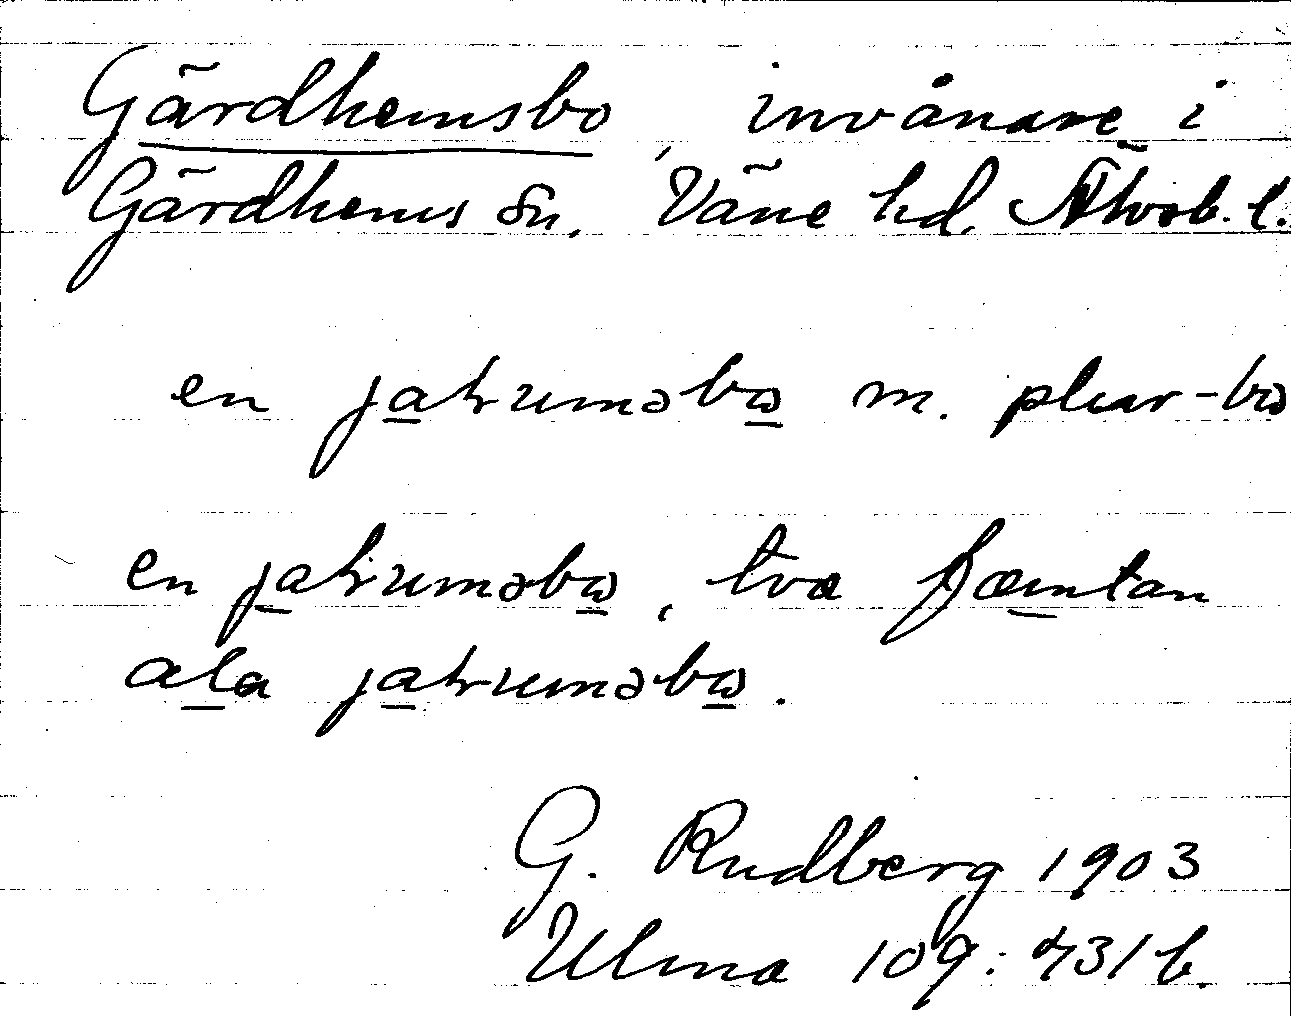 Gärdhemsbo invånare i
Gärdhems sn, Väne hd, Älvsb. l.
en jahruməbɷ m. plur -bɷ
en jahruməbɷ, tva fæmtan
ala jahruməbɷ.
G. Rudberg 1903
Ulma 109:731 b.